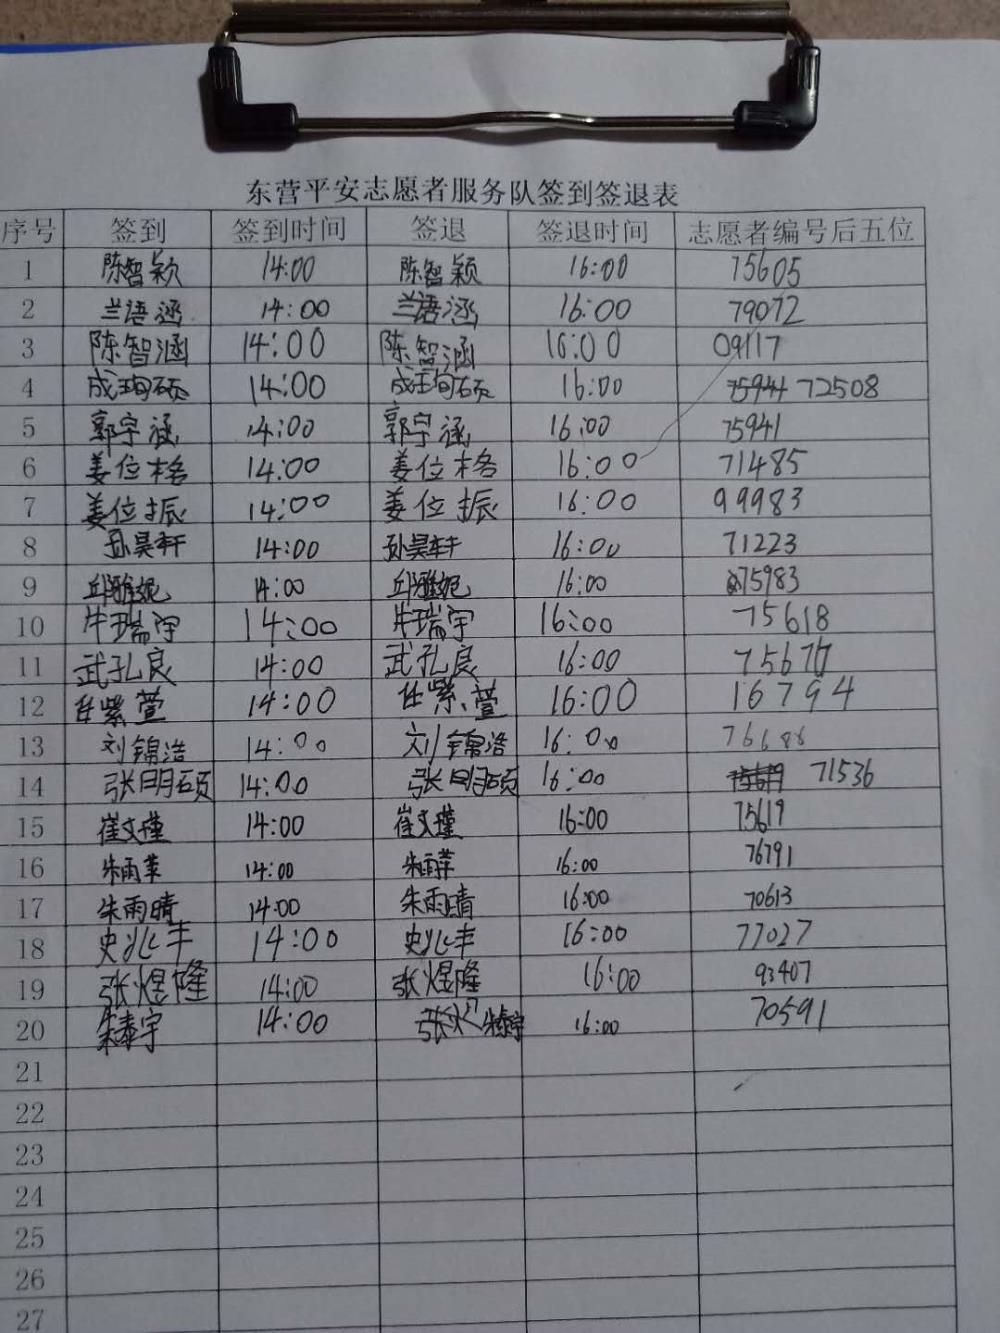 东营平安志愿者服务队签到签退表
序号 签到 签到时间 签退 签退时间 志愿者编号后五位
1 陈智颖 14:00 陈智颖 16:00 75605
2 兰语涵 14:00 兰语涵 16:00 79072
3 陈智涵 14:00 陈智涵 16:00 09117
4 成珣硕 14:00 成珣硕 16:00 72508
5 郭宇涵 14:00 郭宇涵 16:00 75941
6 姜位格 14:00 姜位格 16:00 71485
7 姜位振 14:00 姜位振 16:00 99983
8 孙昊轩 14:00 孙昊轩 16:00 71223
9 邱雅妮 14:00 邱雅妮 16:00 75983
10 牛瑞宇 14:00 牛瑞宇 16:00 75618
11 武孔良 14:00 武孔良 16:00 75677
12 任紫萱 14:00 任紫萱 16:00 16794
13 刘锦浩 14:00 刘锦浩 16:00
14 张明硕 14:00 张明硕 16:00 71536
15 崔文瑾 14:00 崔文瑾 16:00 75619
16 朱雨苹 14:00 朱雨苹 16:00 76791
17 朱雨晴 14:00 朱雨晴 16:00 70613
18 史兆丰 14:00 史兆丰 16:00 77027
19 张煜隆 14:00 张煜隆 16:00 93407
20 朱泰宇 14:00 朱泰宇 16:00 70591
21
22
23
24
25
26
27